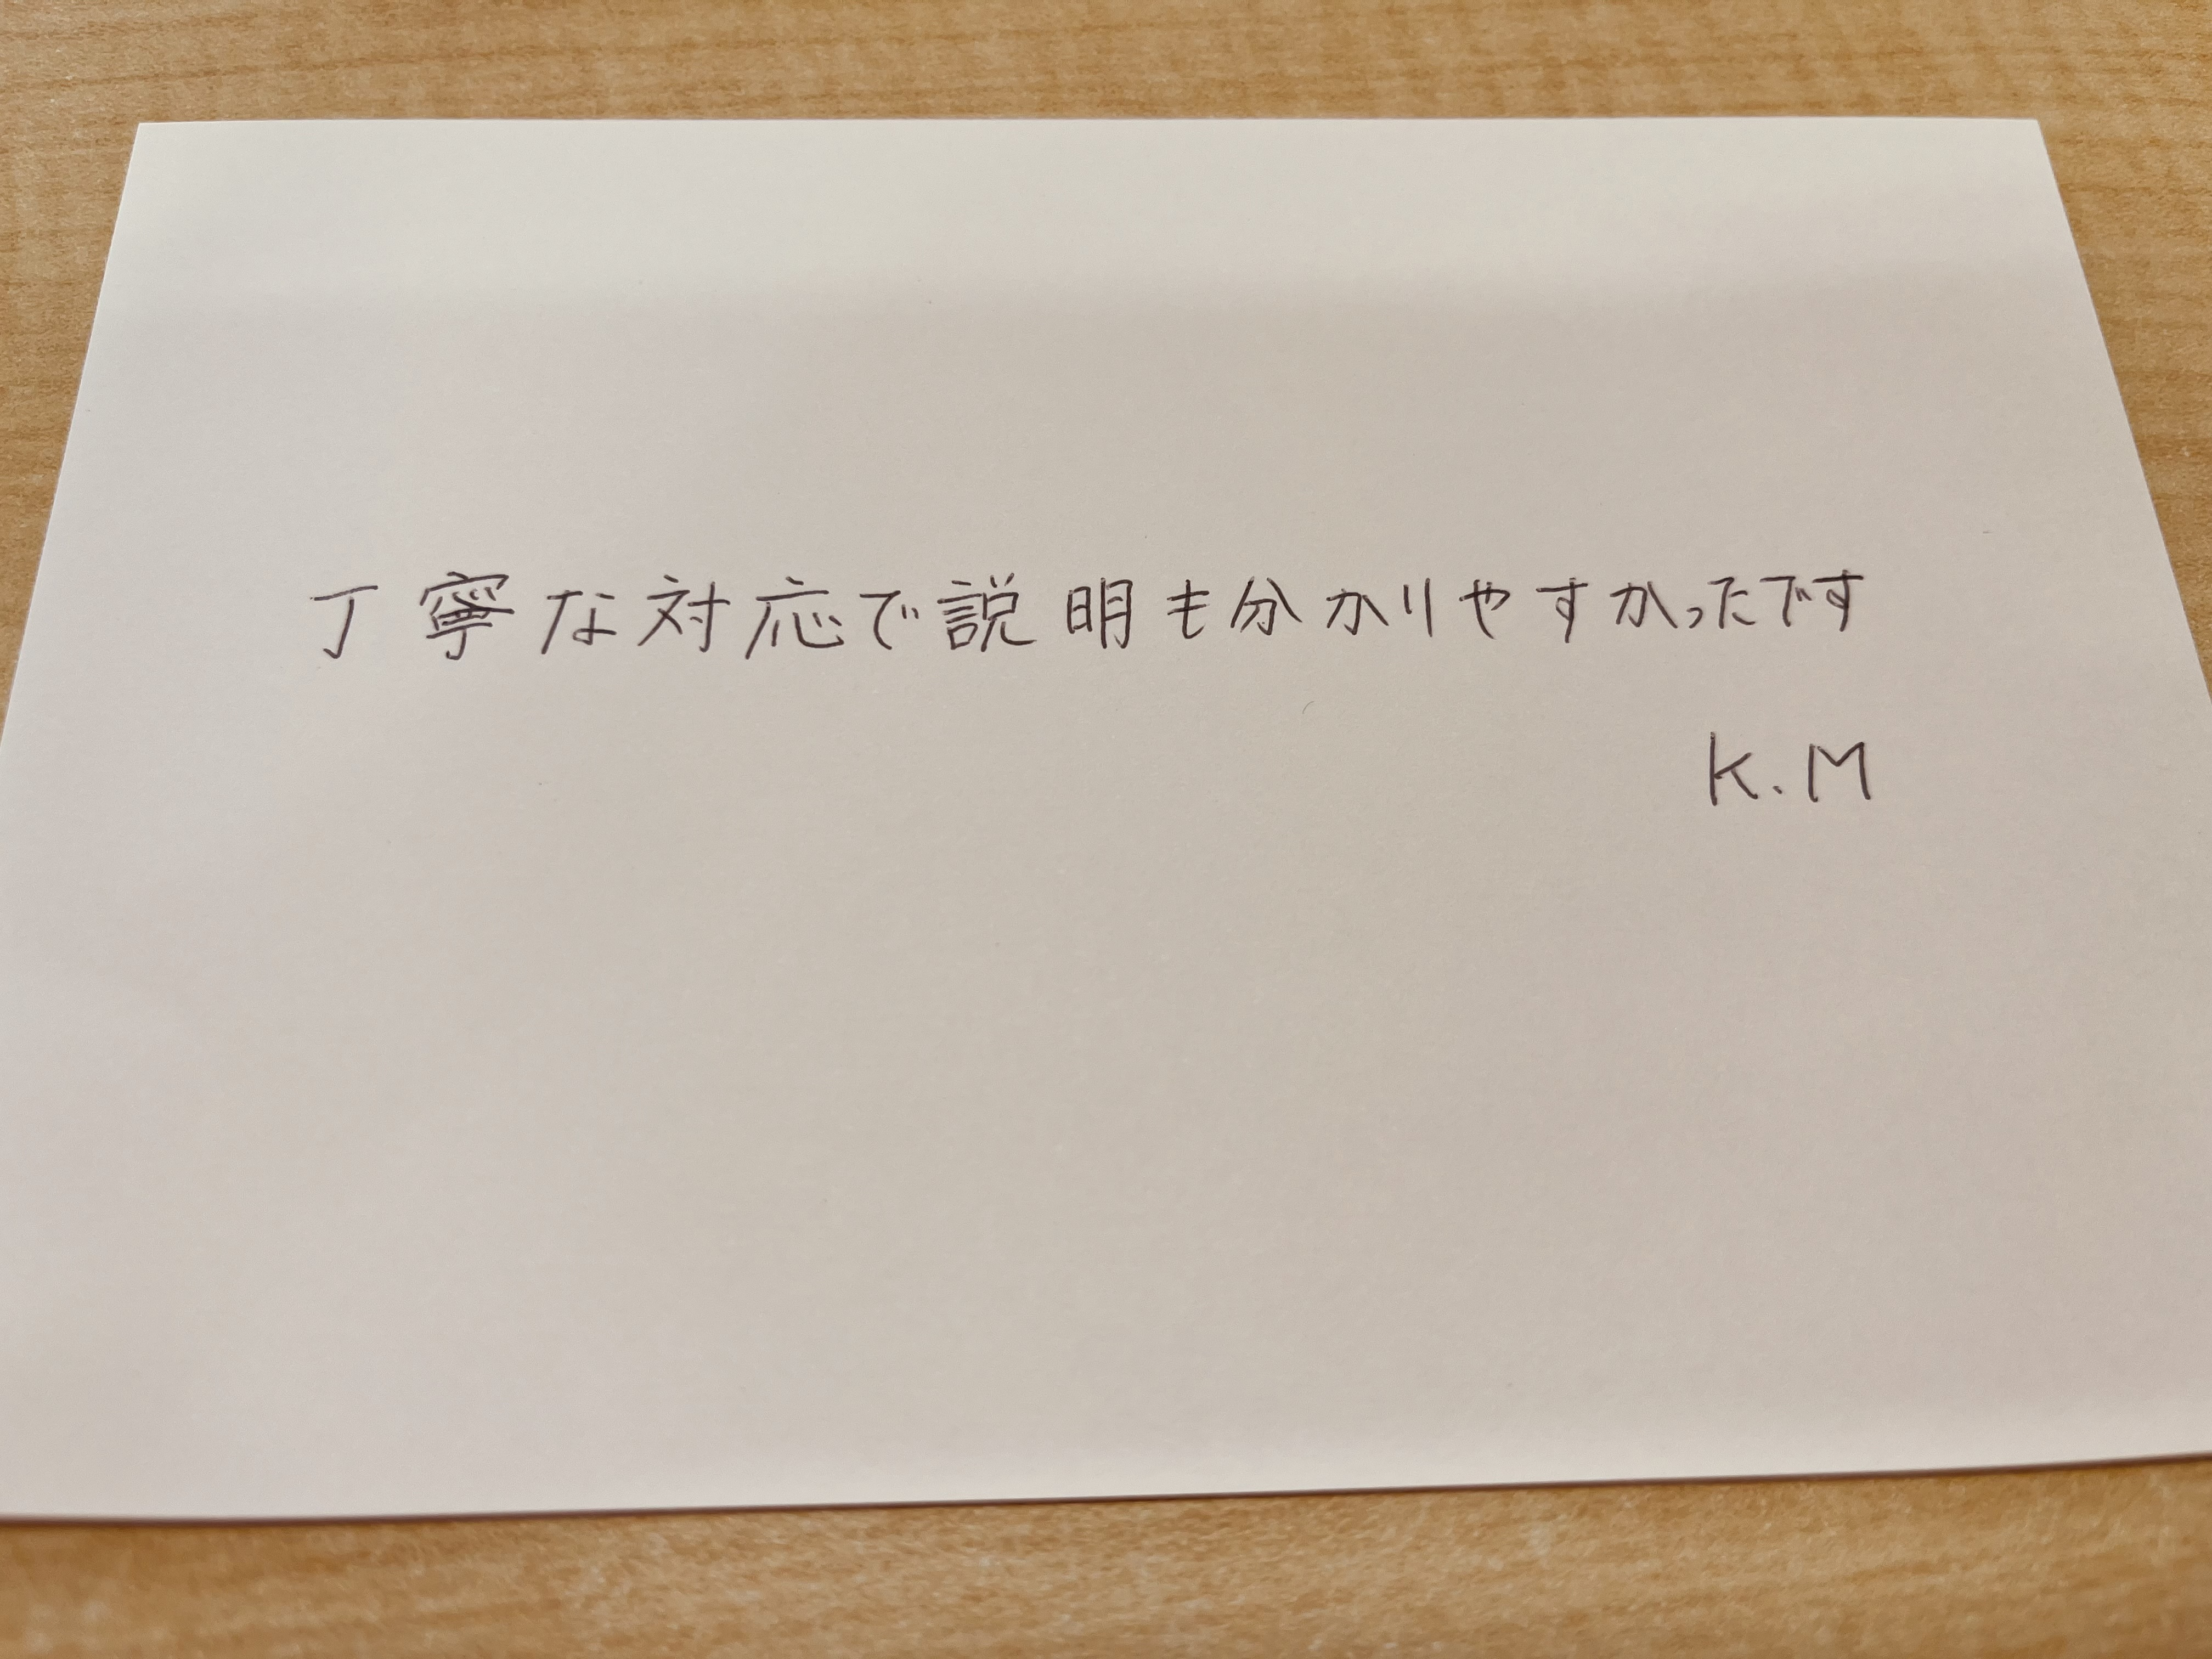 丁寧な対応で説明も分かりやすかったです
K.M